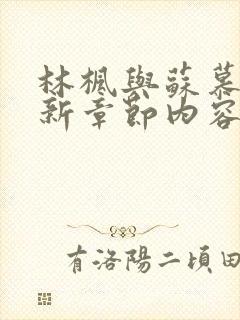 林楓與蘇慕
新章節內容
有洛陽二頃田